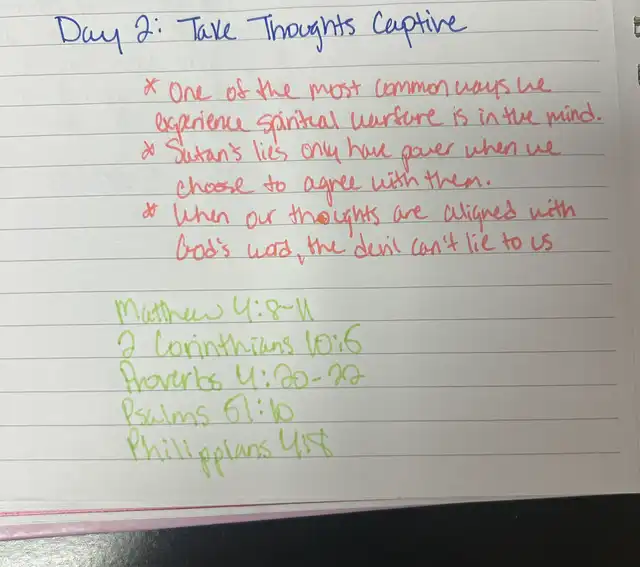 Day 2: Take Thoughts Captive
* One of the most common ways we
experience spiritual warfare is in the mind.
* Satan's lies only have power when we
choose to agree with them.
* When our thoughts are aligned with
God's word, the devil can't lie to us
Matthew 4:8-11
2 Corinthians 10:6
Proverbs 4:20-22
Psalms 51:10
Philippians 4:8